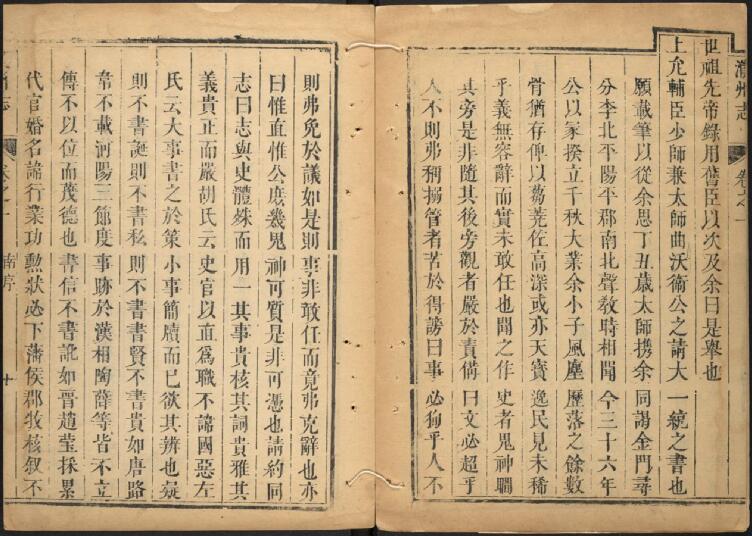 州志 卷之一
世祖先帝錄用舊臣以次及余曰是舉也
上允輔臣少師兼太師曲沃衛公之請大一統之書也
願載筆以從余思丁丑歲太師携余同謁金門尋
分李北平陽平郡南北聲教時相聞今三十六年
公以家揆立千秋大業余小子風塵歷落之餘數
骨猶存俾以蒭蕘佐高深或亦天寶逸民見未稀
乎義無容辭而實未敢任也聞之作史者鬼神瞯
其旁是非隨其後旁觀者嚴於責備曰文必超乎
人不則弗稱搦管者苦於得謗曰事必狥乎人不
則弗免於議如是則事非敢任而竟弗克辭也亦
曰惟直惟公庶幾鬼神可質是非可憑也請約同
志曰志與史體殊而用一其事貴核其詞貴雅其
義貴正而嚴胡氏云史官以直爲職不諱國惡左
氏云大事書之於策小事簡牘而已欲其辨也疑
則不書誕則不書私則不書書賢不書貴如唐路
韋不載河陽三節度事跡於漢相陶薛等皆不立
傳不以位而茂德也書信不書訛如晋趙瑩採累
代官婚名諱行業功勲狀必下藩侯郡牧核叙不
州志 卷之一 序 十